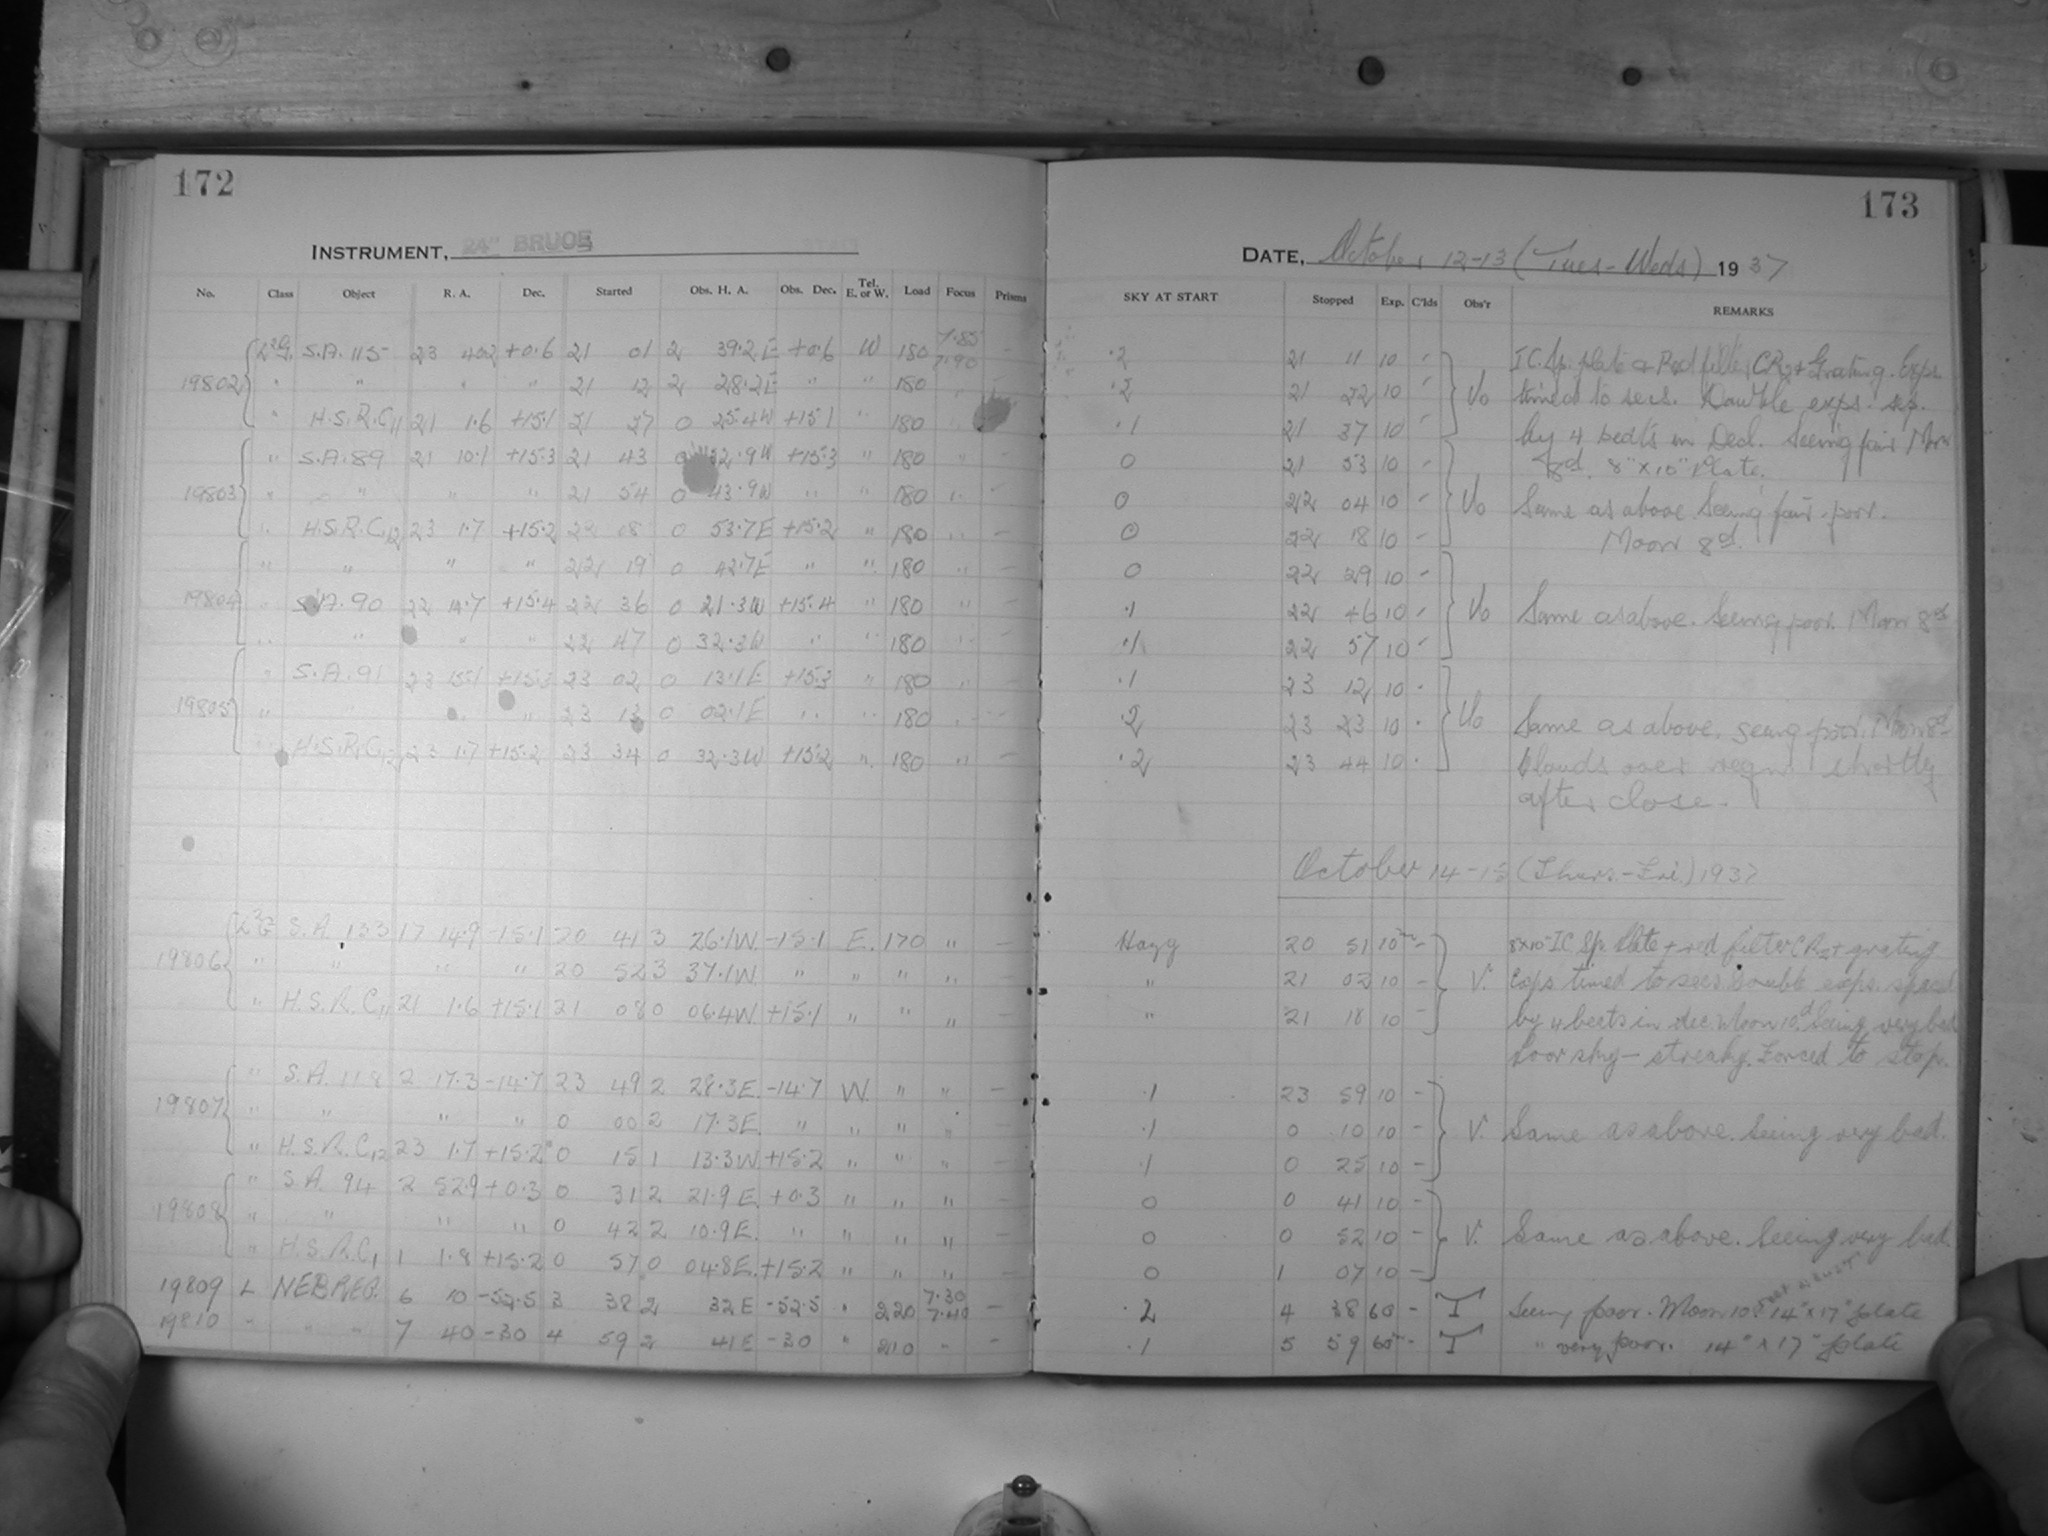 172
INSTRUMENT, 24" BRUCE
No. Class Object R. A. Dec. Started Obs. H. A. Obs. Dec. Tel. E. or W. Load Focus Prisms
S.A. 115 23 40.2 +0.6 21 01 2 39.2E +0.6 W 180 7.85 7.90 –
19802 " " " " 21 12 2 28.2E " " 180
" H.S.R.C11 21 1.6 +15.1 21 27 0 25.4W +15.1 " 180
" S.A. 89 21 10.1 +15.3 21 43 0 32.9W +15.3 " 180 " –
19803 " " " " 21 54 0 43.9W " " 180 " –
" H.S.R.C12 23 1.7 +15.2 22 08 0 53.7E +15.2 " 180 " –
" " " " 22 19 0 42.7E " " 180 " –
19804 " S.A. 90 22 14.7 +15.4 22 36 0 21.3W +15.4 " 180 " –
" " " " 22 47 0 32.3W " " 180 " –
" S.A. 91 23 15.1 +15.3 23 02 0 13.1E +15.3 " 180 " –
19805 " " " " 23 13 0 02.1E " " 180 " –
H.S.R.C12 23 1.7 +15.2 23 34 0 32.3W +15.2 " 180 " –
S.A. 133 17 14.9 -15.1 20 41 3 26.1W -15.1 E. 170 " –
19806 " " " " 20 52 3 37.1W " " " "
" H.S.R.C11 21 1.6 +15.1 21 08 0 06.4W +15.1 " " "
" S.A. 118 2 17.3 -14.7 23 49 2 28.3E. -14.7 W. " " –
19807 " " " " 0 00 2 17.3E. " " " "
" H.S.R.C12 23 1.7 +15.2 0 15 1 13.3W. +15.2 " " " –
" S.A. 94 2 52.9 +0.3 0 31 2 21.9E. +0.3 " " "
19808 " " " " 0 42 2 10.9E. " " " "
" H.S.R.C1 1 1.8 +15.2 0 57 0 04.8E. +15.2 " " " –
19809 L NEB REG. 6 10 -52.5 3 38 2 32E -52.5 " 220 7.30 7.40 –
19810 " " " 7 40 -30 4 59 2 41E -30 " 210 " –
173
DATE, October 12-13 (Tues-Weds) 1937
SKY AT START Stopped Exp. C'lds Obs'r REMARKS
.2 21 11 10 I.C. Sp. plate & Red filter CR2 + Grating. Exps.
.2 21 22 10 timed to secs. Double exps. sep.
.1 21 37 10 by 4 in Decl. Seeing fair Moon
0 21 53 10 8d. 8"x10" Plate.
0 22 04 10 Same as above Seeing fair-poor.
0 22 18 10 Moon 8d.
0 22 29 10
.1 22 46 10 Same as above. Seeing poor. Moon 8d
.1 22 57 10
.1 23 12 10
.2 23 23 10 Same as above. Seeing poor. Moon 8d
.2 23 44 10 Clouds over region shortly
after close.
October 14-15 (Thurs.-Fri.) 1937
Hazy 20 51 10 – 8x10" IC Sp. Plate + red filter CR2 + grating
" 21 02 10 – V. Exps timed to secs Double exps. spaced
" 21 18 10 – by 4 beats in dec. Moon 10d Seeing very bad
Poor sky – streaky. Forced to stop.
.1 23 59 10 –
.1 0 10 10 – V. Same as above. Seeing very bad.
.1 0 25 10 –
0 0 41 10 –
0 0 52 10 – V. Same as above. Seeing very bad.
0 1 07 10 –
.2 4 38 60 – T Seeing poor. Moon 10d 14"x17" plate
.1 5 59 60 – T " very poor. 14" x 17" plate